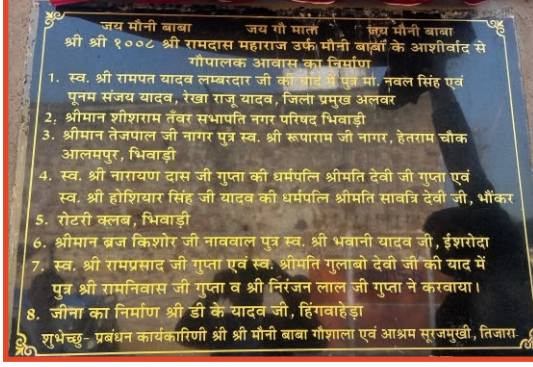 जय मौनी बाबा जय गौ माता जय मौनी बाबा
श्री श्री १००८ श्री रामदास महाराज उर्फ मौनी बाबा के आशीर्वाद से
गौपालक आवास का निर्माण
1. स्व. श्री रामपत यादव लम्बरदार जी की याद में पुत्र मा. नवल सिंह एवं
पूनम संजय यादव, रेखा राजू यादव, जिला प्रमुख अलवर
2. श्रीमान शीशराम तँवर सभापति नगर परिषद भिवाड़ी
3. श्रीमान तेजपाल जी नागर पुत्र स्व. श्री रूपाराम जी नागर, हेतराम चौक
आलमपुर, भिवाड़ी
4. स्व. श्री नारायण दास जी गुप्ता की धर्मपत्नि श्रीमति देवी जी गुप्ता एवं
स्व. श्री होशियार सिंह जी यादव की धर्मपत्नि श्रीमति सावत्रि देवी जी, भौंकर
5. रोटरी क्लब, भिवाड़ी
6. श्रीमान ब्रज किशोर जी नाववाल पुत्र स्व. श्री भवानी यादव जी, ईशरोदा
7. स्व. श्री रामप्रसाद जी गुप्ता एवं स्व. श्रीमति गुलाबो देवी जी की याद में
पुत्र श्री रामनिवास जी गुप्ता व श्री निरंजन लाल जी गुप्ता ने करवाया।
8. जीना का निर्माण श्री डी के यादव जी, हिंगवाहेड़ा
शुभेच्छु- प्रबंधन कार्यकारिणी श्री श्री मौनी बाबा गौशाला एवं आश्रम सूरजमुखी, तिजारा